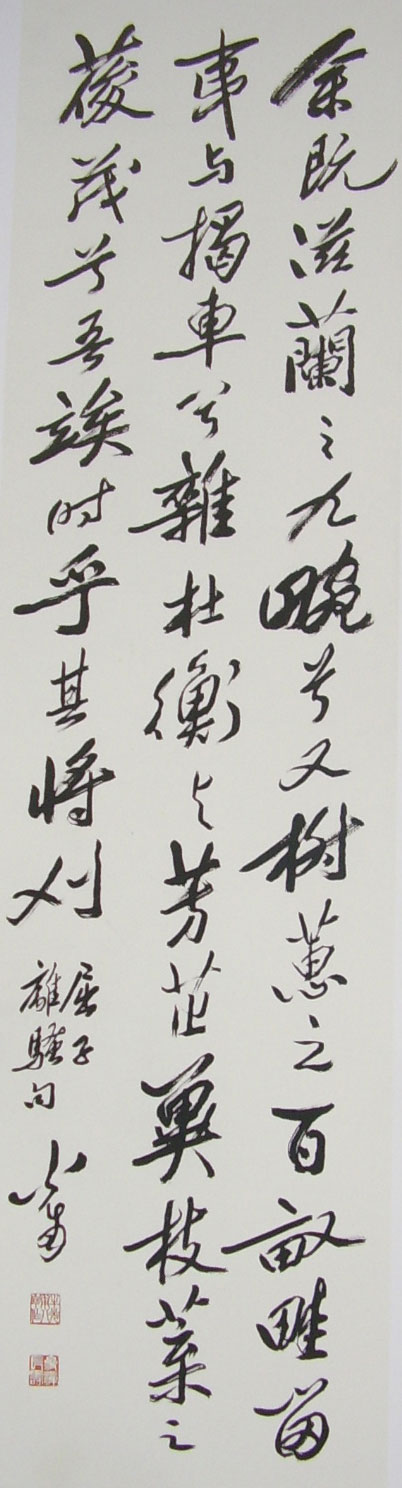 余既滋蘭之九畹兮又樹蕙之百畝畦留
夷与揭車兮雜杜衡与芳芷冀枝葉之
葰茂兮吾竢时乎其將刈
屈子
離騷句
心畬